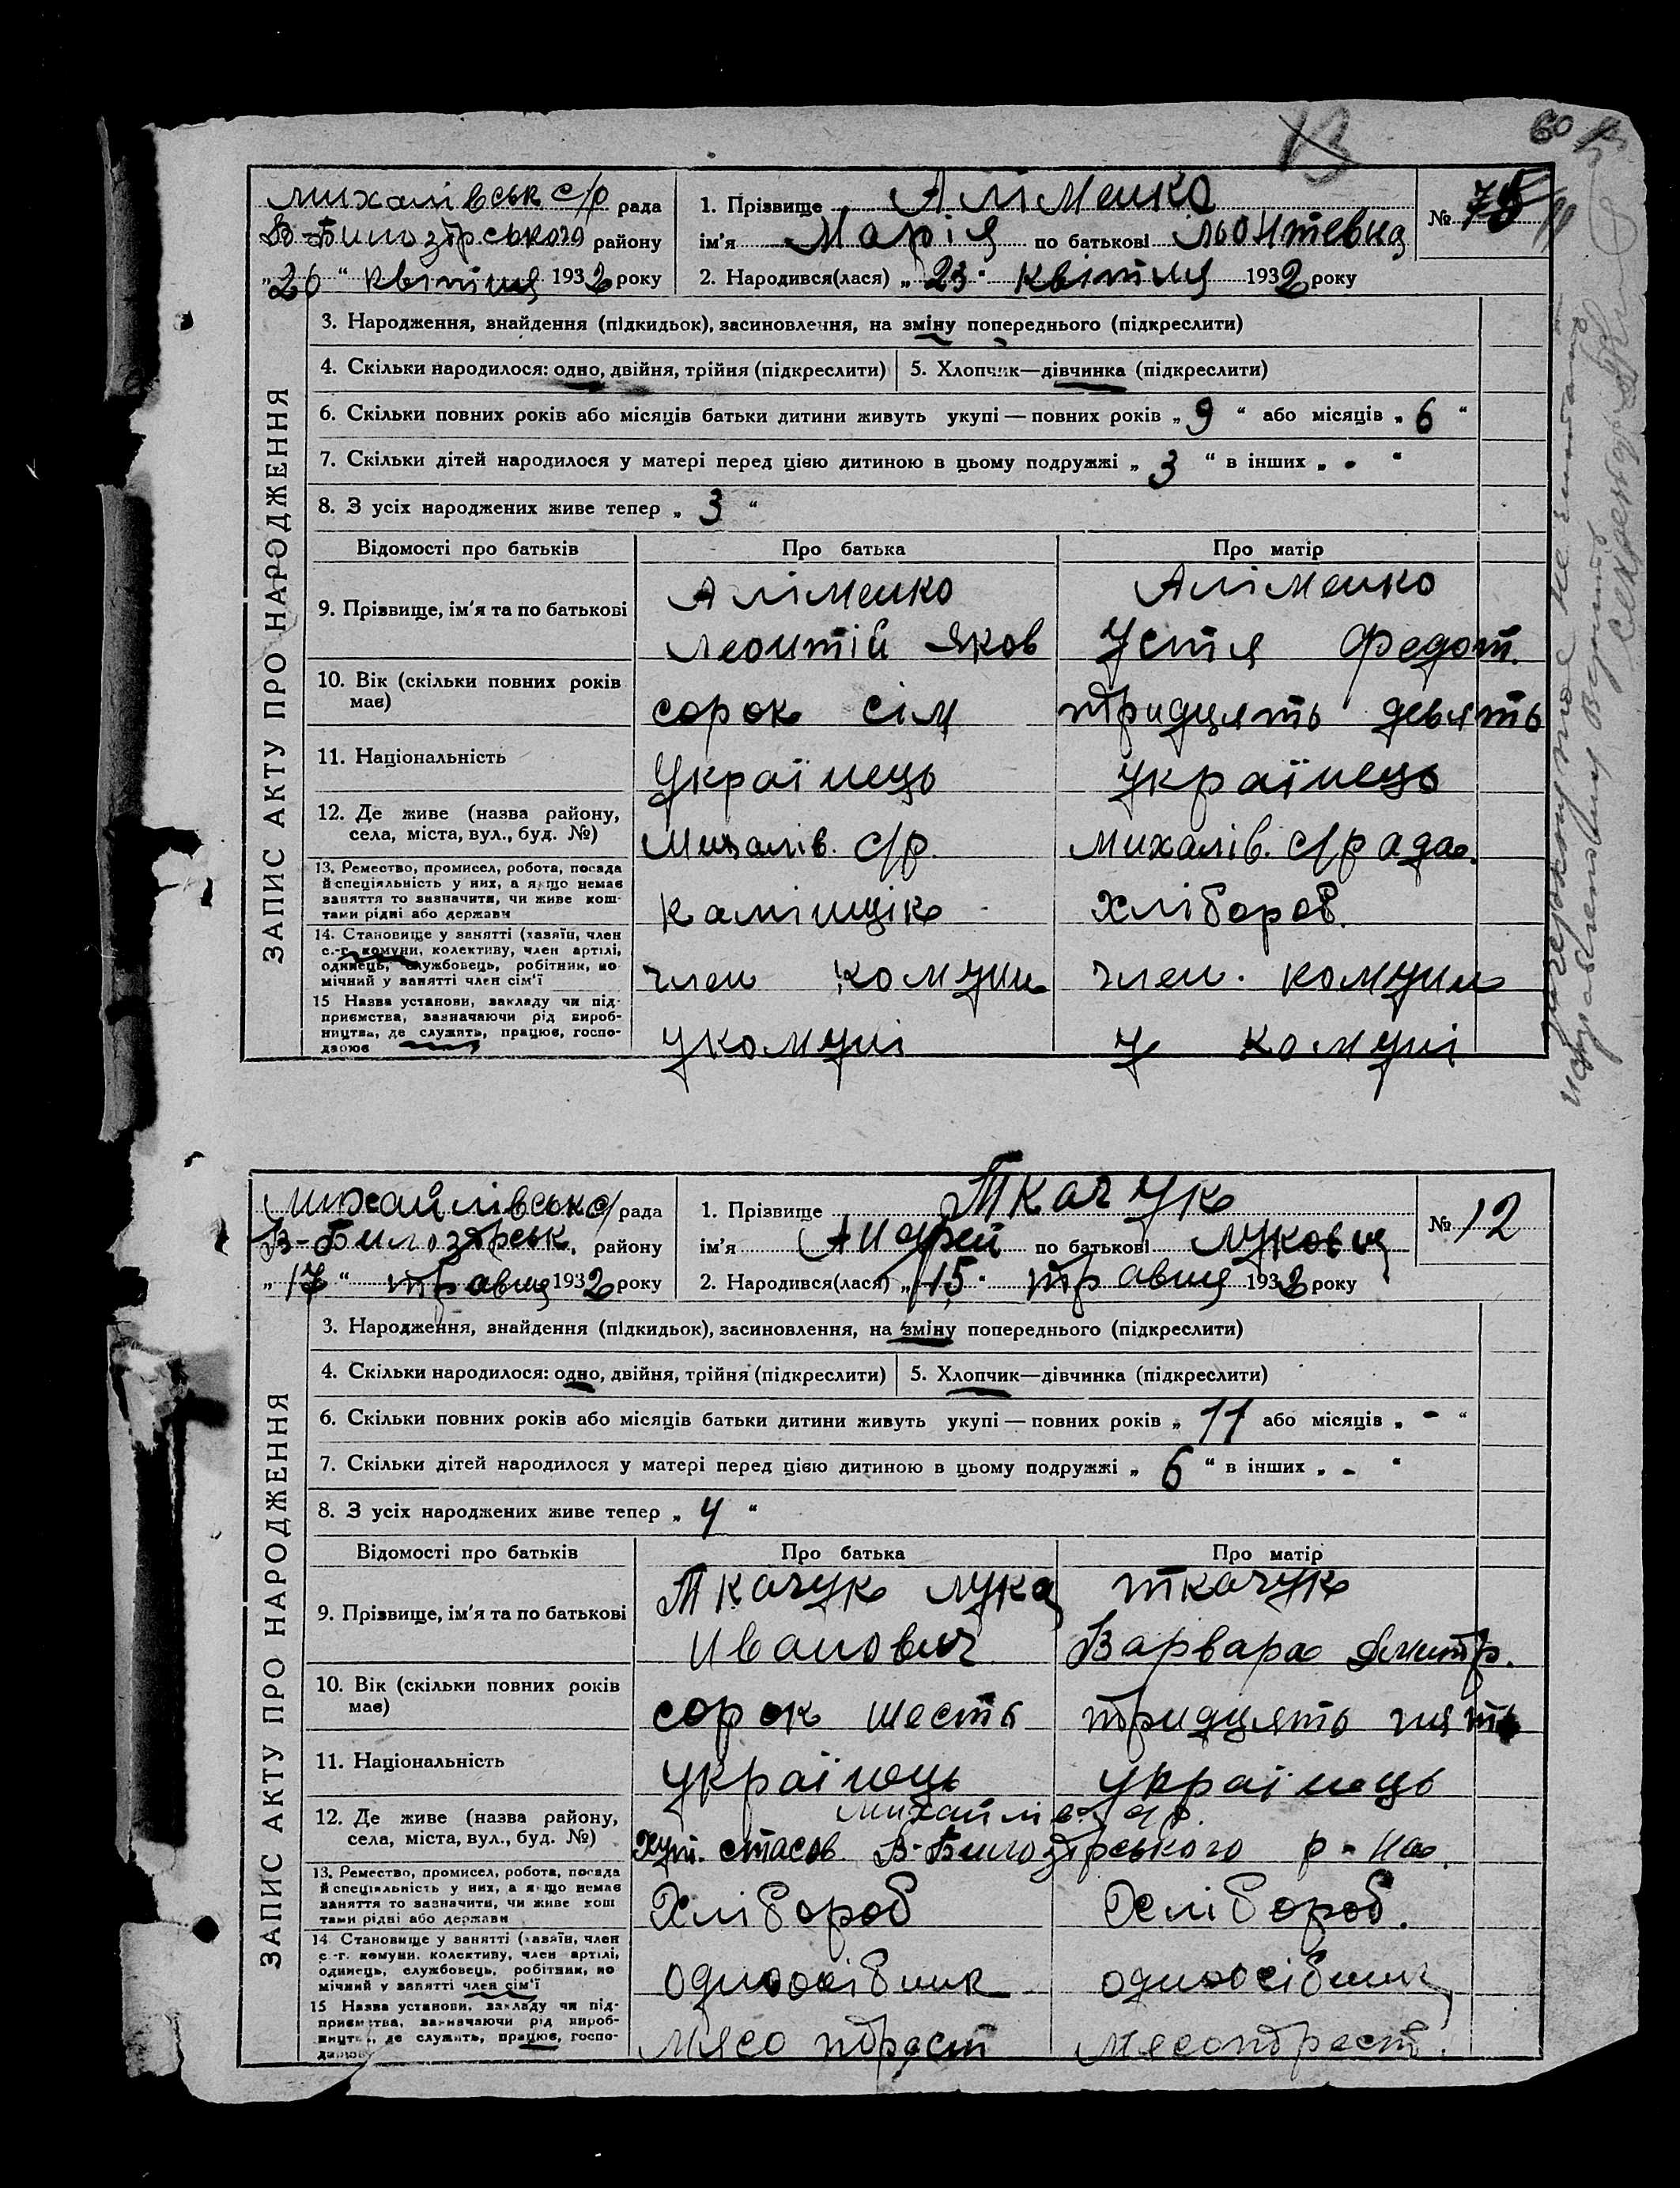 13
60
Михалівськ с/р рада
В-Билозірського району
„26“ Квітня 1932 року
1. Прізвище Аліменко
ім'я Марія по батькові Льонтевна
2. Народився(лася) „23“ Квітня 1932 року
№ 75
ЗАПИС АКТУ ПРО НАРОДЖЕННЯ
3. Народження, знайдення (підкидьок), засиновлення, на зміну попереднього (підкреслити)
4. Скільки народилося: одно, двійня, трійня (підкреслити)
5. Хлопчик—дівчинка (підкреслити)
6. Скільки повних років або місяців батьки дитини живуть укупі — повних років „9“ або місяців „6“
7. Скільки дітей народилося у матері перед цією дитиною в цьому подружжі „3“ в інших „-“
8. З усіх народжених живе тепер „3“
Відомості про батьків
Про батька
Про матір
9. Прізвище, ім'я та по батькові
Аліменко
Леонтій Яков
Аліменко
Устя Федот.
10. Вік (скільки повних років має)
сорок сім
тридцять девять
11. Національність
Українець
Українець
12. Де живе (назва району, села, міста, вул., буд. №)
Михалів. с/р.
Михалів. с/рада.
13. Ремество, промисел, робота, посада й спеціяльність у них, а якщо немає заняття то зазначити, чи живе коштами рідні або держави
Камінщік
Хлібороб.
14. Становище у занятті (хазяїн, член с.-г. комуни, колективу, член артілі, одинець, службовець, робітник, помічний у занятті член сім'ї
член комуни
член. комуни
15 Назва установи, закладу чи підприємства, зазначаючи рід виробництва, де служить, працює, господарює
укомуні
у комуні
зачеркнутое не читать
исправленному верить
Секретарь
Михайлівськ с/рада
В-Билозірськ. району
„17“ травня 1932 року
1. Прізвище Ткачук
ім'я Андрей по батькові Луковия
2. Народився(лася) „15“ травня 1932 року
№ 12
ЗАПИС АКТУ ПРО НАРОДЖЕННЯ
3. Народження, знайдення (підкидьок), засиновлення, на зміну попереднього (підкреслити)
4. Скільки народилося: одно, двійня, трійня (підкреслити)
5. Хлопчик—дівчинка (підкреслити)
6. Скільки повних років або місяців батьки дитини живуть укупі — повних років „11 або місяців „-“
7. Скільки дітей народилося у матері перед цією дитиною в цьому подружжі „6“ в інших „-“
8. З усіх народжених живе тепер „4“
Відомості про батьків
Про батька
Про матір
9. Прізвище, ім'я та по батькові
Ткачук Лука
Иванович
Ткачук
Варвара Дмитр.
10. Вік (скільки повних років має)
сорок шесть
тридцять пять
11. Національність
Українець
Українець
12. Де живе (назва району, села, міста, вул., буд. №)
Михайлівс. с/р.
Хут. Стасов. В-Билозірського р-на.
13. Ремество, промисел, робота, посада й спеціяльність у них, а якщо немає заняття то зазначити, чи живе коштами рідні або держави
Хлібороб
Хлібороб.
14. Становище у занятті (хазяїн, член с.-г. комуни, колективу, член артілі, одинець, службовець, робітник, помічний у занятті член сім'ї
одноосібник
одноосібник
15 Назва установи, закладу чи підприємства, зазначаючи рід виробництва, де служить, працює, господарює
Мясо трест
Мясотрест.